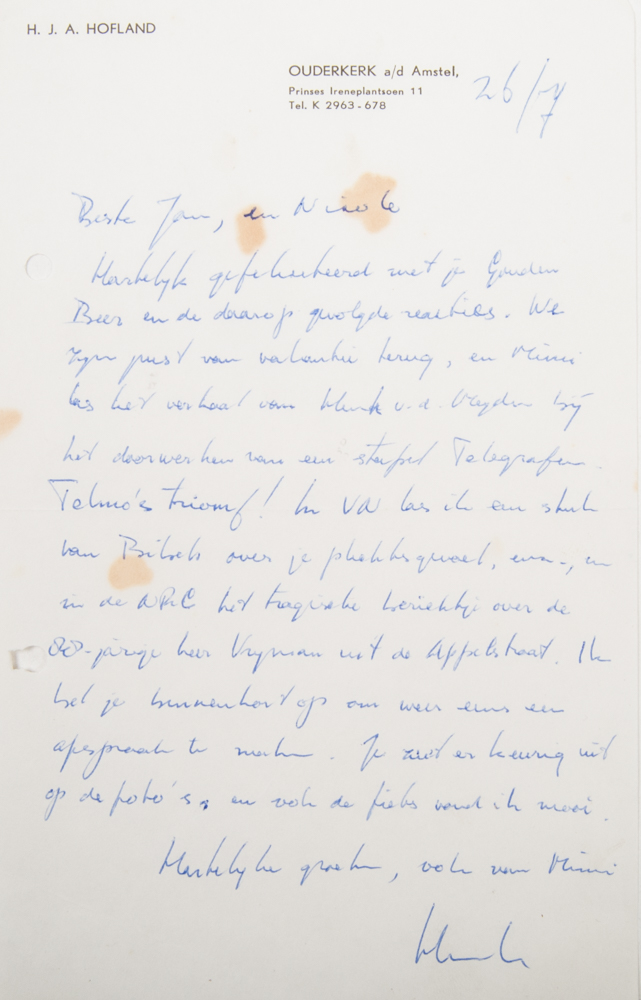 H. J. A. HOFLAND
OUDERKERK a/d Amstel,
Prinses Ireneplantsoen 11
Tel. K 2963-678
26/7
Beste Jan, en Nicole
Hartelijk gefeliciteerd met je Gouden
Beer en de daarop gevolgde reacties. We
zijn juist van vakantie terug, en Mimi
las het verhaal van Henk v.d. Meyden bij
het doorwerken van een stapel Telegrafen.
Telmo's triomf! In VN las ik een stuk
van Bibeb over je plekke, en
in de NRC het tragische berichtje over de
80-jarige heer Vrijman uit de Appelstraat. Ik
bel je binnenkort op om weer eens een
afspraak te maken. Je ziet er keurig uit
op de foto's, en ook de fiets vond ik mooi.
Hartelijke groeten, ook van Mimi
Henk